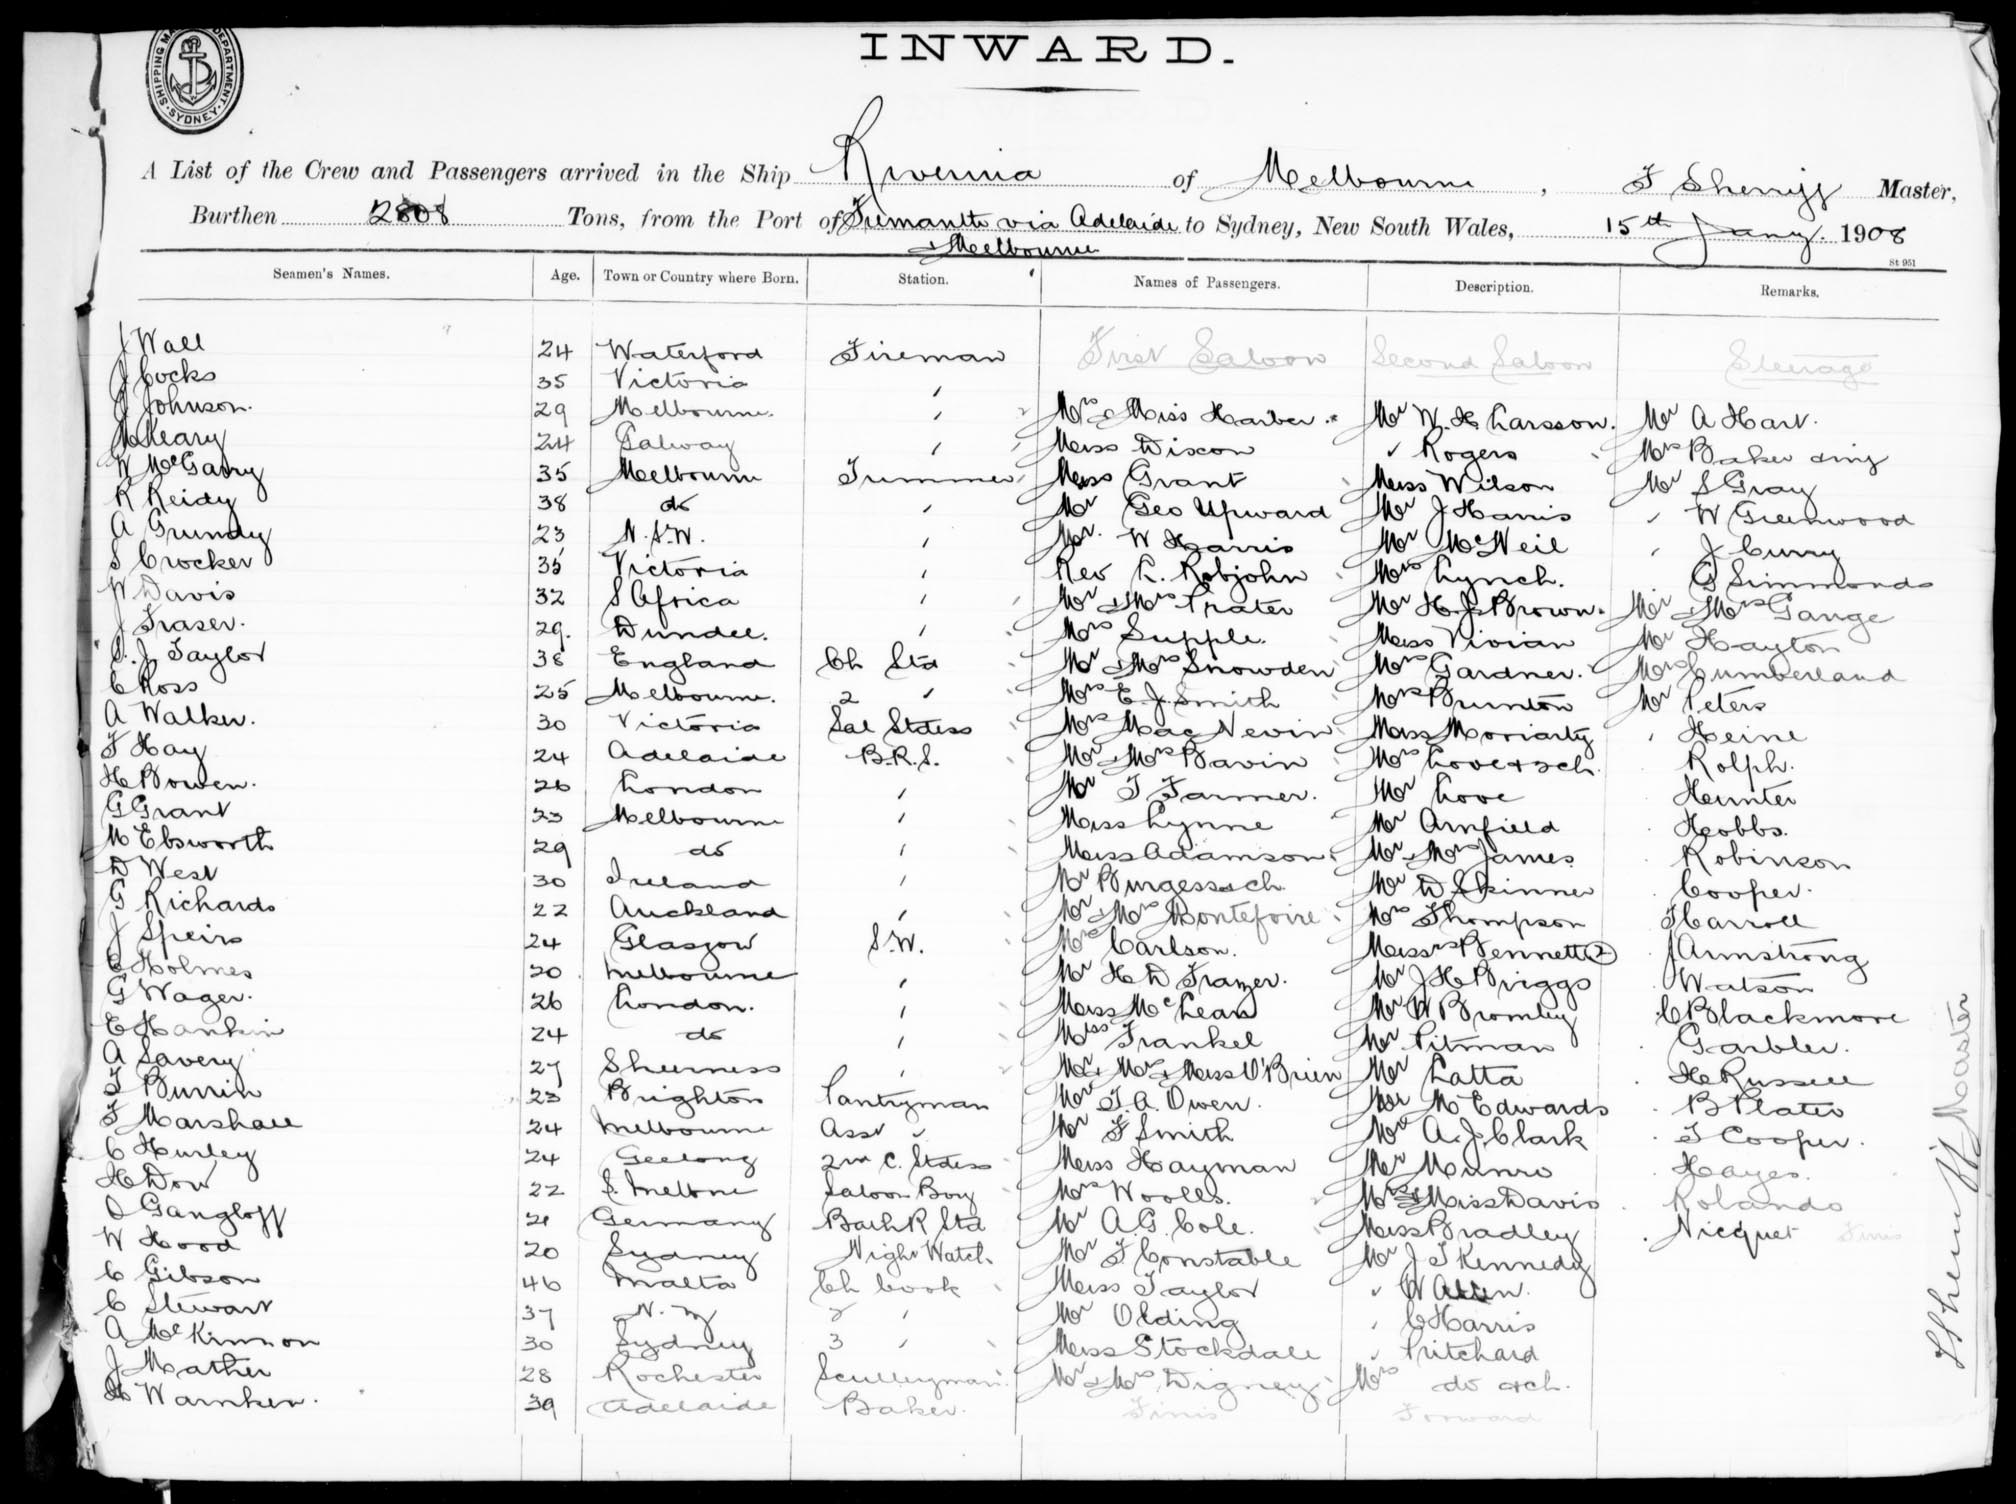 SHIPPING MASTER'S DEPARTMENT. SYDNEY
INWARD.
A List of the Crew and Passengers arrived in the Ship Riverina of Melbourne, F Sherriff Master,
Burthen 2808 Tons, from the Port of Fremantle via Adelaide & Melbourne to Sydney, New South Wales, 15th Jany. 1908
St 951
Seamen's Names. Age. Town or Country where Born. Station. Names of Passengers. Description. Remarks.
J Wall 24 Waterford Fireman First Saloon Second Saloon Steerage
J Cocks 35 Victoria "
J Johnson. 29 Melbourne. " Mrs & Miss Harber Mr W. H Larsson. Mr A Hart.
M Keary 24 Galway " Miss Dixon " Rogers Mrs Baker &
W McGarry 35 Melbourne Trimmer Miss Grant Miss Wilson Mr S Gray
R Reidy 38 do " Mr Geo Upward Mr J Harris " W Greenwood
A Grundy 23 N.S.W. " Mr. W Harris Mr McNeil " J Curry
S Crocker 35 Victoria " Rev L. Robjohn Mrs Lynch. G Simmonds
W Davis 32 S Africa " Mr & Mrs Prater Mr H. J. Brown. Mr & Mrs Gange
J Fraser. 29. Dundee. " Mrs Supple. Miss Vivian Mr Hayton
S. J Taylor 38 England Ch Std Mr & Mrs Snowden Mrs Gardner. Mrs Cumberland
C Ross 25 Melbourne. 2 " Mrs E. J. Smith Mrs Brunton Mr Peters
A Walker. 30 Victoria Sal Stdess Mrs MacNevin Miss Moriarty " Heine
F Hay 24 Adelaide B.R.S. Mr & Mrs Bavin Mrs Love & 3 ch. Rolph.
H Bowen. 26 London " Mr T Farmer. Mr Love Hunter
G Grant 23 Melbourne " Miss Lynne Mr Arnfield Hobbs.
M Ebsworth 29 do " Miss Adamson. Mr & Mrs James Robinson
D West 30 Ireland " Mr Burgess & ch Mr D Skinner Cooper.
G Richards 22 Auckland " Mr & Mrs Montefoire Mrs Thompson J Carroll
J Speirs 24 Glasgow S.W. Mr Carlson. Misses Bennett (2) J Armstrong
C Holmes 20 Melbourne " Mr H D Frazer. Mr J H Briggs Watson
G Wager. 26 London. " Miss McLean Mr W Bromley C Blackmore
E Hankin 24 do " Miss Frankel Mr Pitman Garbler.
A Savery 27 Sheerness " Mr & Mrs & Miss O'Brien Mr Latta H Russell
F Burrin 23 Brighton Pantryman Mr T. A. Owen. Mr M Edwards B Plater
F Marshall 24 Melbourne Asst " Mr F Smith Mr A. J. Clark T Cooper.
C Hurley 24 Geelong 2nd C. Stdess Miss Hayman Mr Munro Hayes.
H Dow 22 S. Melbne Saloon Boy Mrs Woolls. Mrs & Miss Davis Rolando
O Gangloff 21 Germany Bath R Std Mr A. G. Cole. Miss Bradley Nicquet Finis
W Hood 20 Sydney Night Watch. Mr F Constable Mr J T Kennedy
C Gibson 46 Malta Ch Cook Miss Taylor " W Allen.
C Stewart 37 N. Z 2 " Mr Olding " C Harris
A McKinnon 30 Sydney 3 " Miss Stockdale " Pritchard
J Mather 28 Rochester Sculleryman. Mr & Mrs Digney Mrs do & ch.
H Warnken. 39 Adelaide Baker. Finis Forward
F Sherriff Master